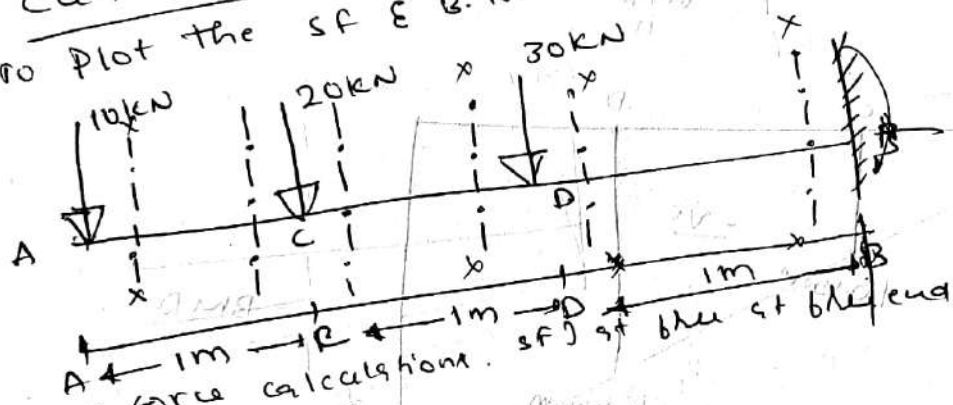 To Plot the SF & B.
10KN
20KN
30KN
x
x
x
A
C
D
B
x
x
x
A
1m
C
1m
D
1m
B
force calculations. SF] at
end